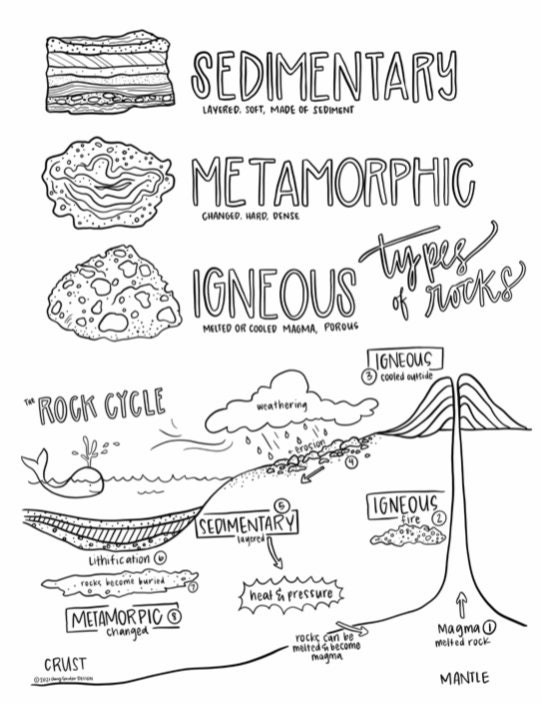 SEDIMENTARY
LAYERED, SOFT, MADE OF SEDIMENT
METAMORPHIC
CHANGED, HARD, DENSE
types
of rocks
IGNEOUS
MELTED OR COOLED MAGMA, POROUS
THE ROCK CYCLE
IGNEOUS
3 cooled outside
weathering
erosion
4
5
SEDIMENTARY
layered
IGNEOUS
fire 2
Lithification 6
rocks become buried 7
METAMORPIC 8
changed
heat & pressure
rocks can be
melted & become
magma
Magma 1
melted rock
CRUST
MANTLE